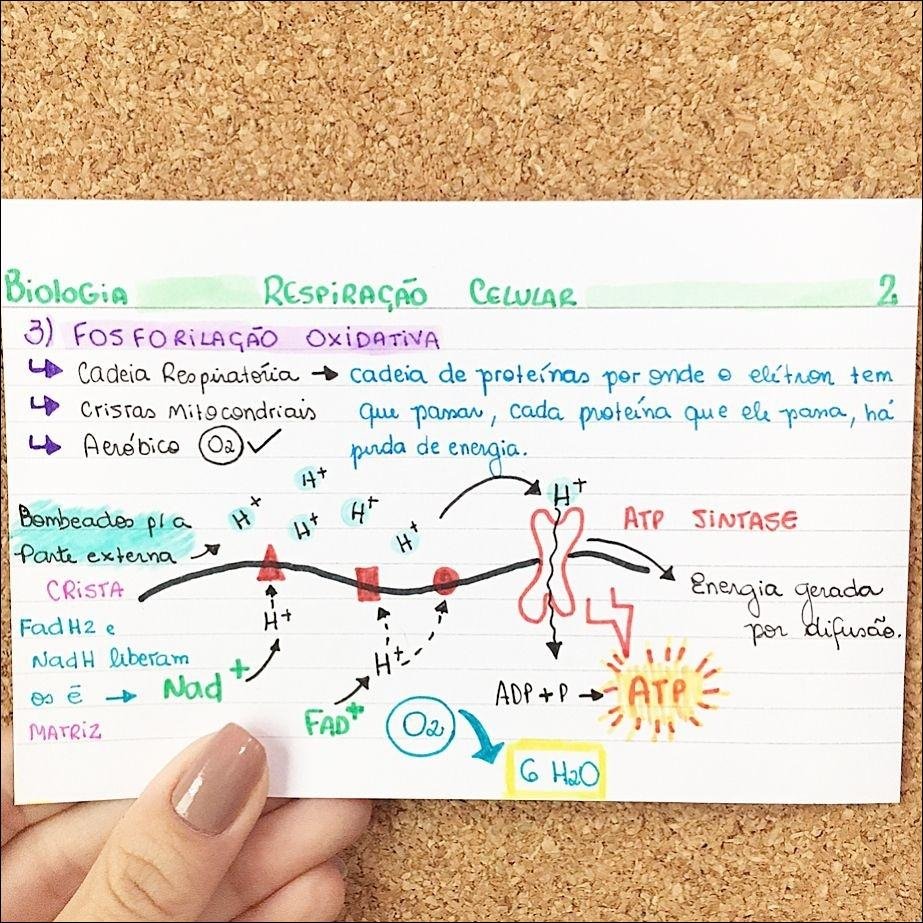 Biologia RESPIRAÇÃO CELULAR 2.
3) FOSFORILAÇÃO OXIDATIVA
↳ Cadeia Respiratória → cadeia de proteínas por onde o elétron tem
↳ Cristas Mitocondriais que passar, cada proteína que ele passa, há
↳ Aeróbico O2 ✓ perda de energia.
H+
H+
H+
H+
H+
H+
Bombeados p/ a
Parte externa →
ATP SINTASE
CRISTA
Energia gerada
por difusão.
H+
FadH2 e
NadH liberam
os ē → Nad+
H+
ADP + P → ATP
MATRIZ
FAD+
O2
6 H2O